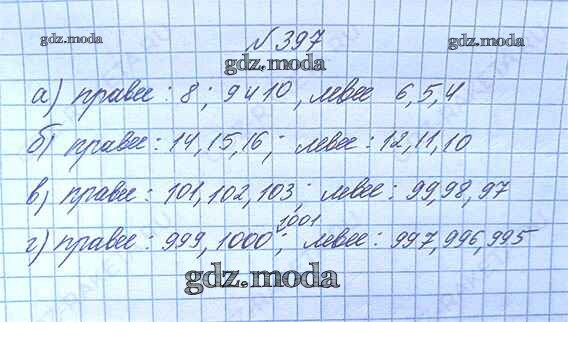 №397
gdz.moda gdz.moda
gdz.moda
а) правее: 8; 9 и 10, левее 6,5,4
б) правее: 14,15,16; левее: 12,11,10
в) правее: 101,102,103; левее: 99,98,97
1001
г) правее: 999, 1000; левее: 997,996,995
gdz.moda
gdz.moda